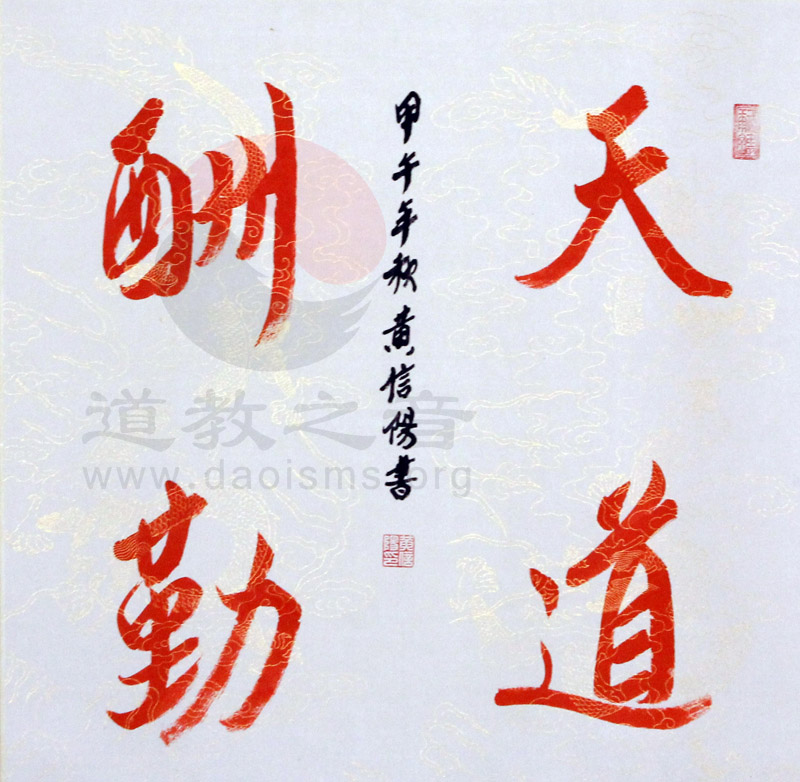 天道
酬勤
甲午年秋黄信陽書
道教之音
www.daoisms.org